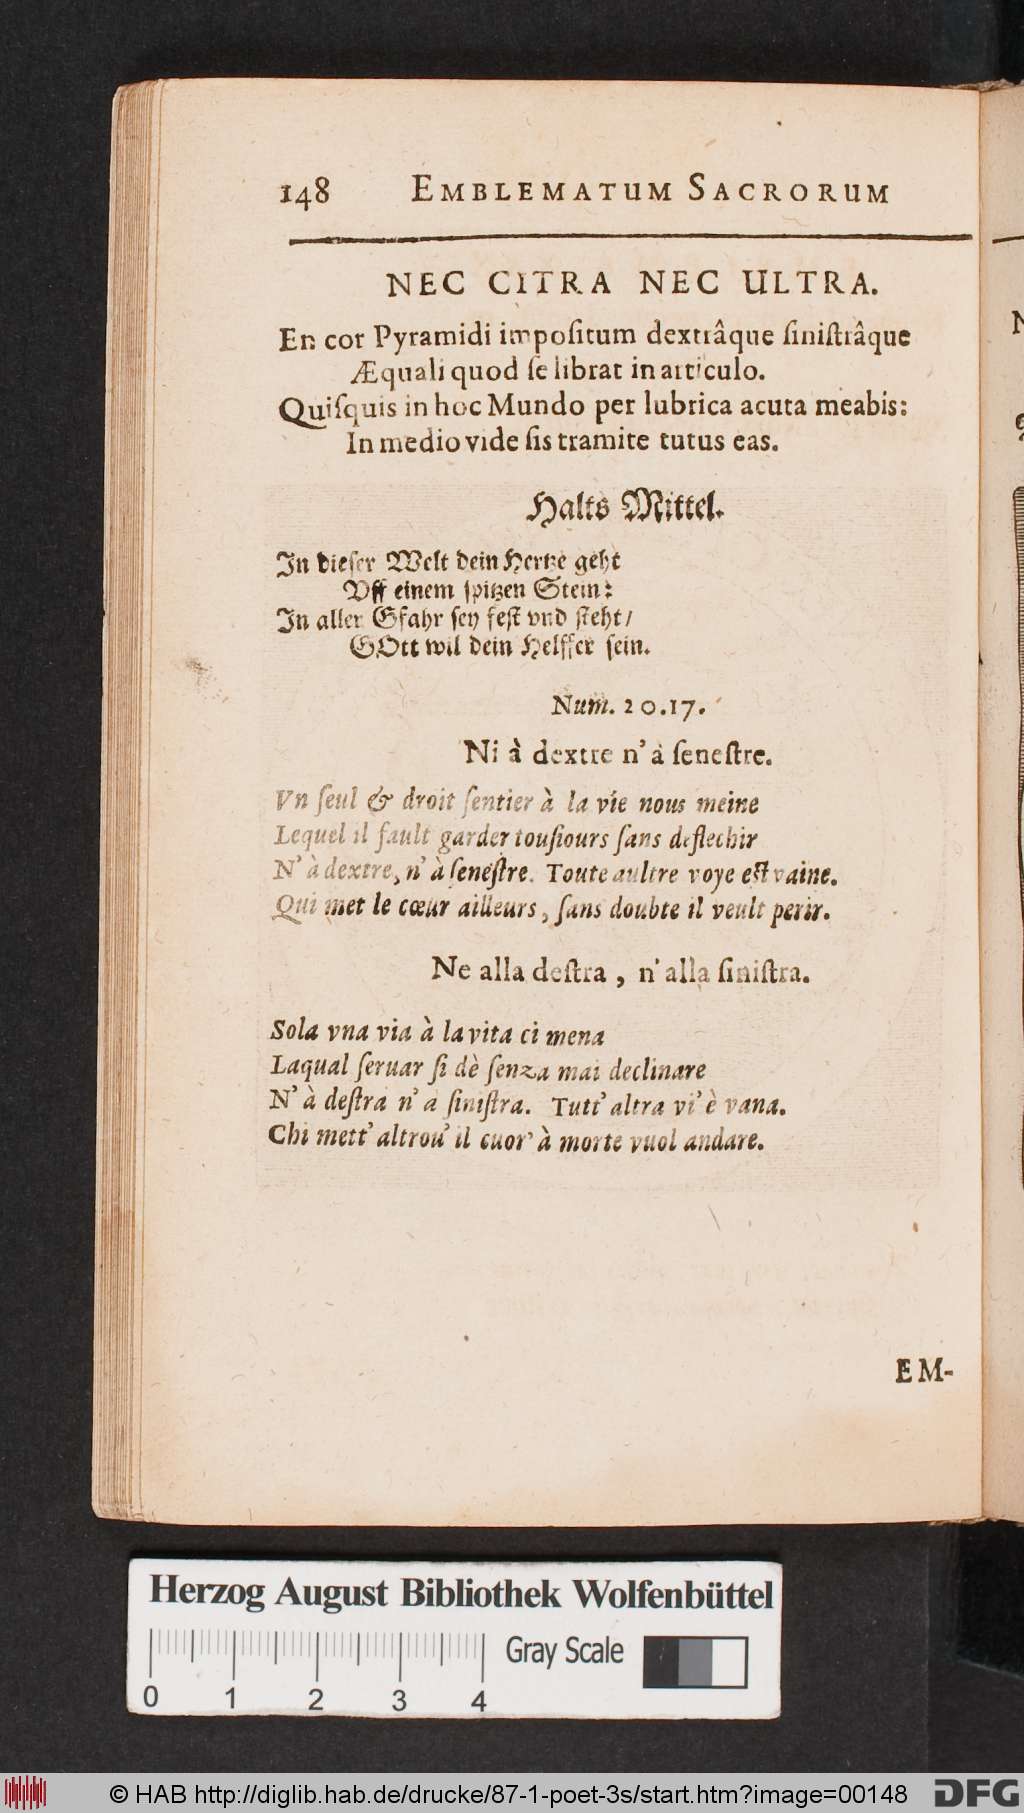 148 EMBLEMATUM SACRORUM
NEC CITRA NEC ULTRA.
En cor Pyramidi impoſitum dextrâque ſiniſtrâque
Æquali quod ſe librat in articulo.
Quiſquis in hoc Mundo per lubrica acuta meabis:
In medio vide ſis tramite tutus eas.
Halts Mittel.
In dieſer Welt dein Hertze geht
Vff einem ſpitzen Stein:
In aller Gfahr ſey feſt vnd ſteht/
GOtt wil dein Helffer ſein.
Num. 20.17.
Ni à dextre n'à ſeneſtre.
Vn ſeul & droit ſentier à la vie nous meine
Lequel il fault garder touſiours ſans deflechir
N' à dextre, n' à ſeneſtre. Toute aultre voye eſt vaine.
Qui met le cœur ailleurs, ſans doubte il veult perir.
Ne alla deſtra, n'alla ſiniſtra.
Sola vna via à la vita ci mena
Laqual ſeruar ſi dè ſenza mai declinare
N' à deſtra n' a ſiniſtra. Tutt' altra vi' è vana.
Chi mett' altrou' il cuor' à morte vuol andare.
EM-
Herzog August Bibliothek Wolfenbüttel
Gray Scale
0 1 2 3 4
© HAB http://diglib.hab.de/drucke/87-1-poet-3s/start.htm?image=00148 DFG